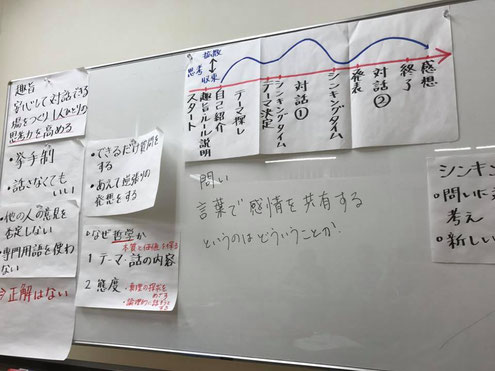 趣旨
安心して対話できる
場をつくり1人ひとりの
思考力を高める
・挙手制
・話さなくても
いい
・他の人の意見を
否定しない
・専門用語を使わ
ない
⇒正解はない
・できるだけ質問を
する
・あえて逆張りの
発想をする
・なぜ哲学か
本質と価値を探る
1 テーマ・話の内容
2 態度
・真理の探求を
めざす
・論理的に話そうと
する
拡散
思考
収束
スタート
趣旨・ルール説明
自己紹介
テーマ探し
シンキングタイム
テーマ決定
対話①
シンキングタイム
発表
対話②
終了
感想
問い
言葉で感情を共有する
というのはどういうことか
シンキン
・問いに
考え
・新しい